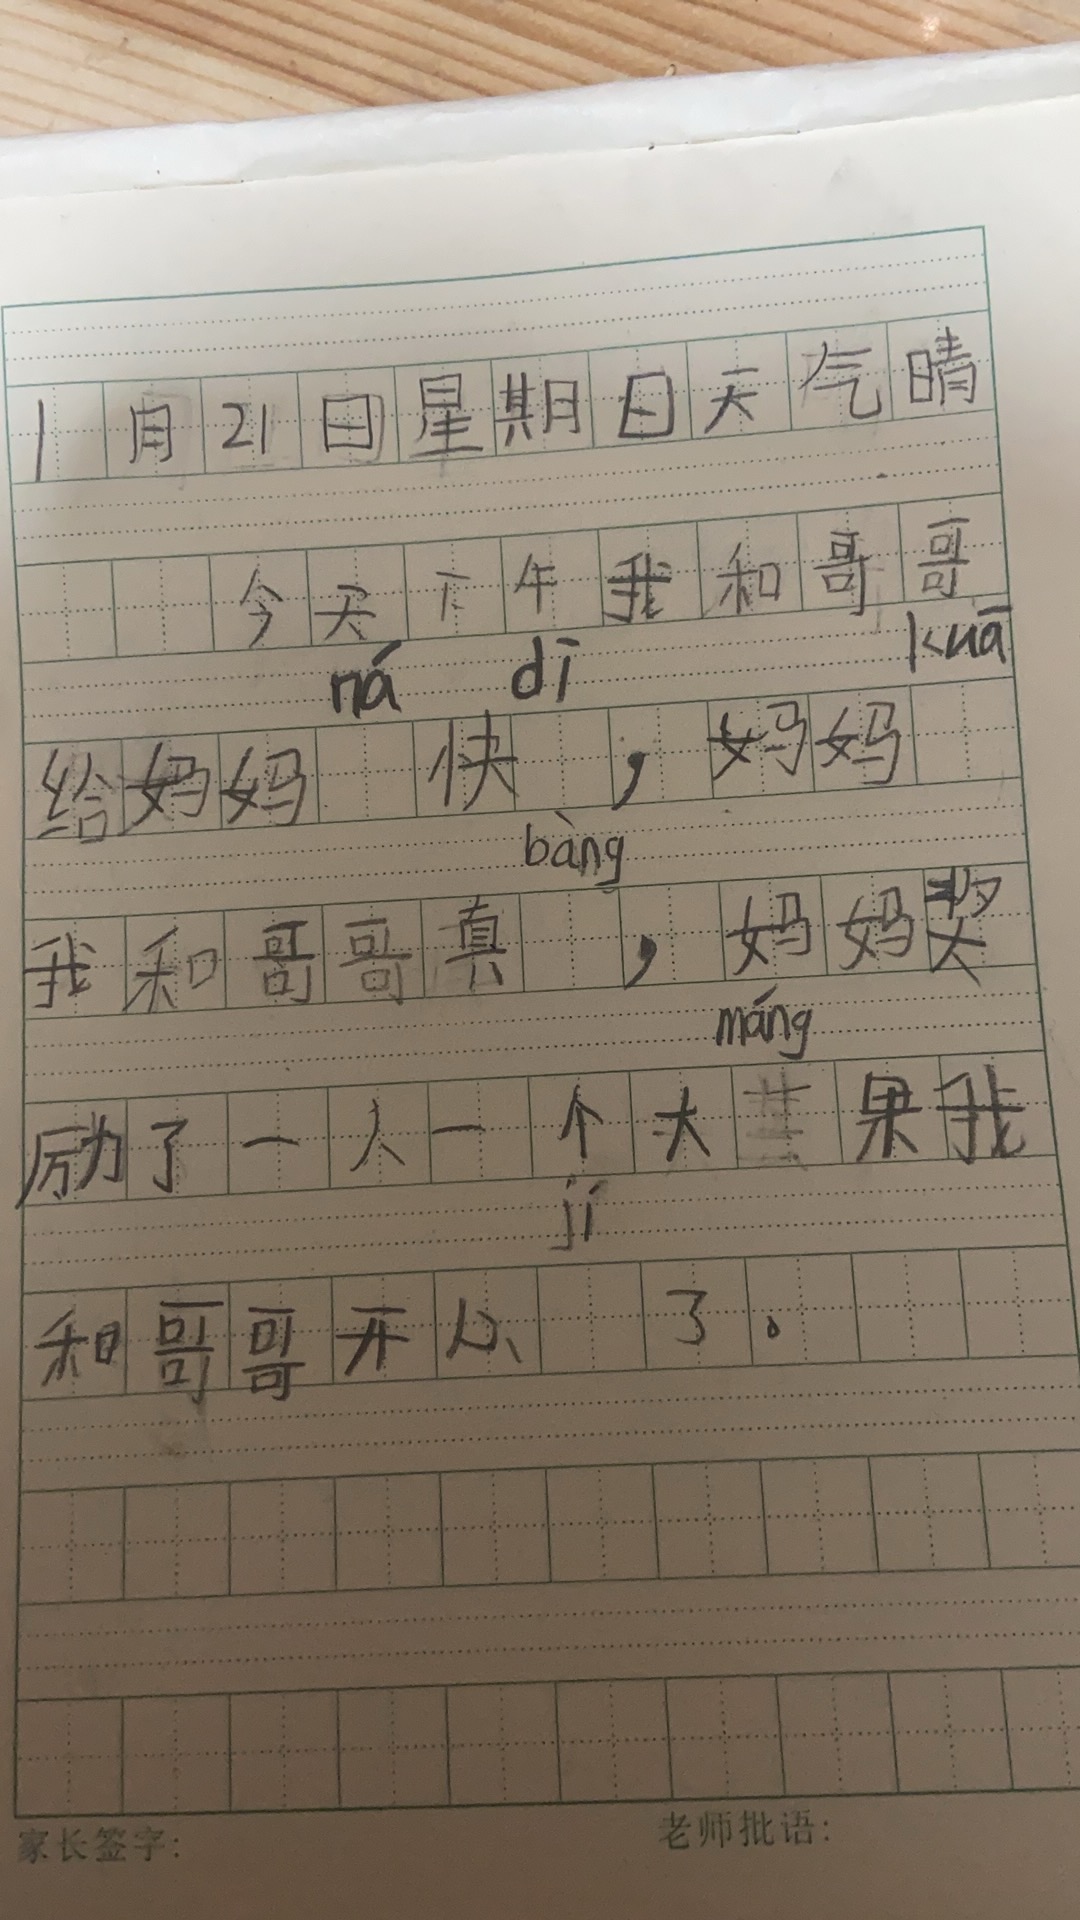 1月21日星期日天气晴
今天下午我和哥哥
ná dì kuā
给妈妈 快 ，妈妈
bàng
我和哥哥真 ，妈妈奖
máng
励了一人一个大 果我
jí
和哥哥开心 了。
家长签字:
老师批语: